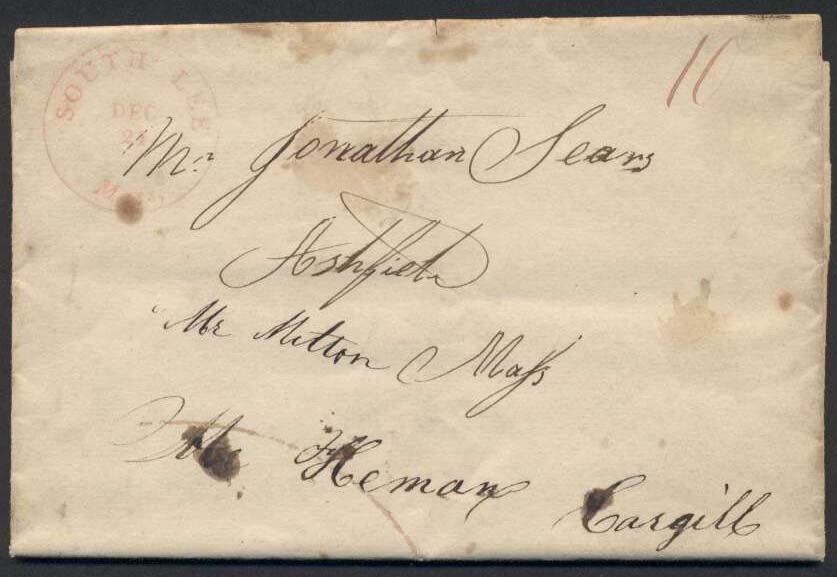 SOUTH LEE
DEC
Mr Jonathan Sears
Ashfield
Mr Milton Mass
Heman Cargill